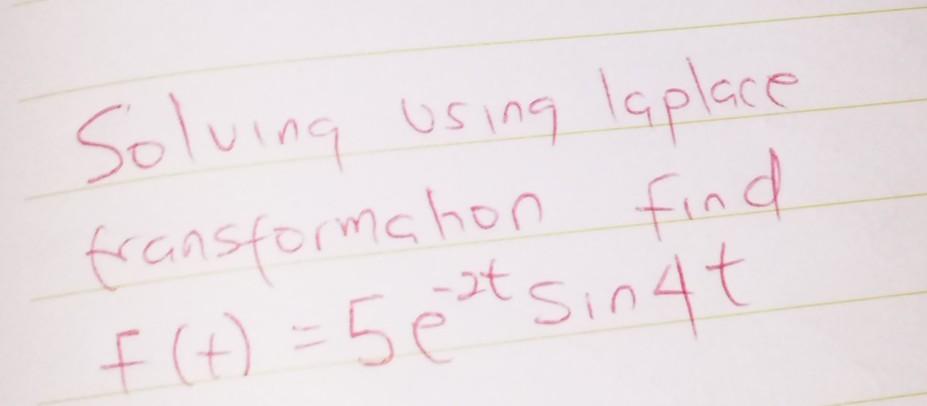 Solving using laplace
transformation find
f(t) = 5e^-2t sin4t